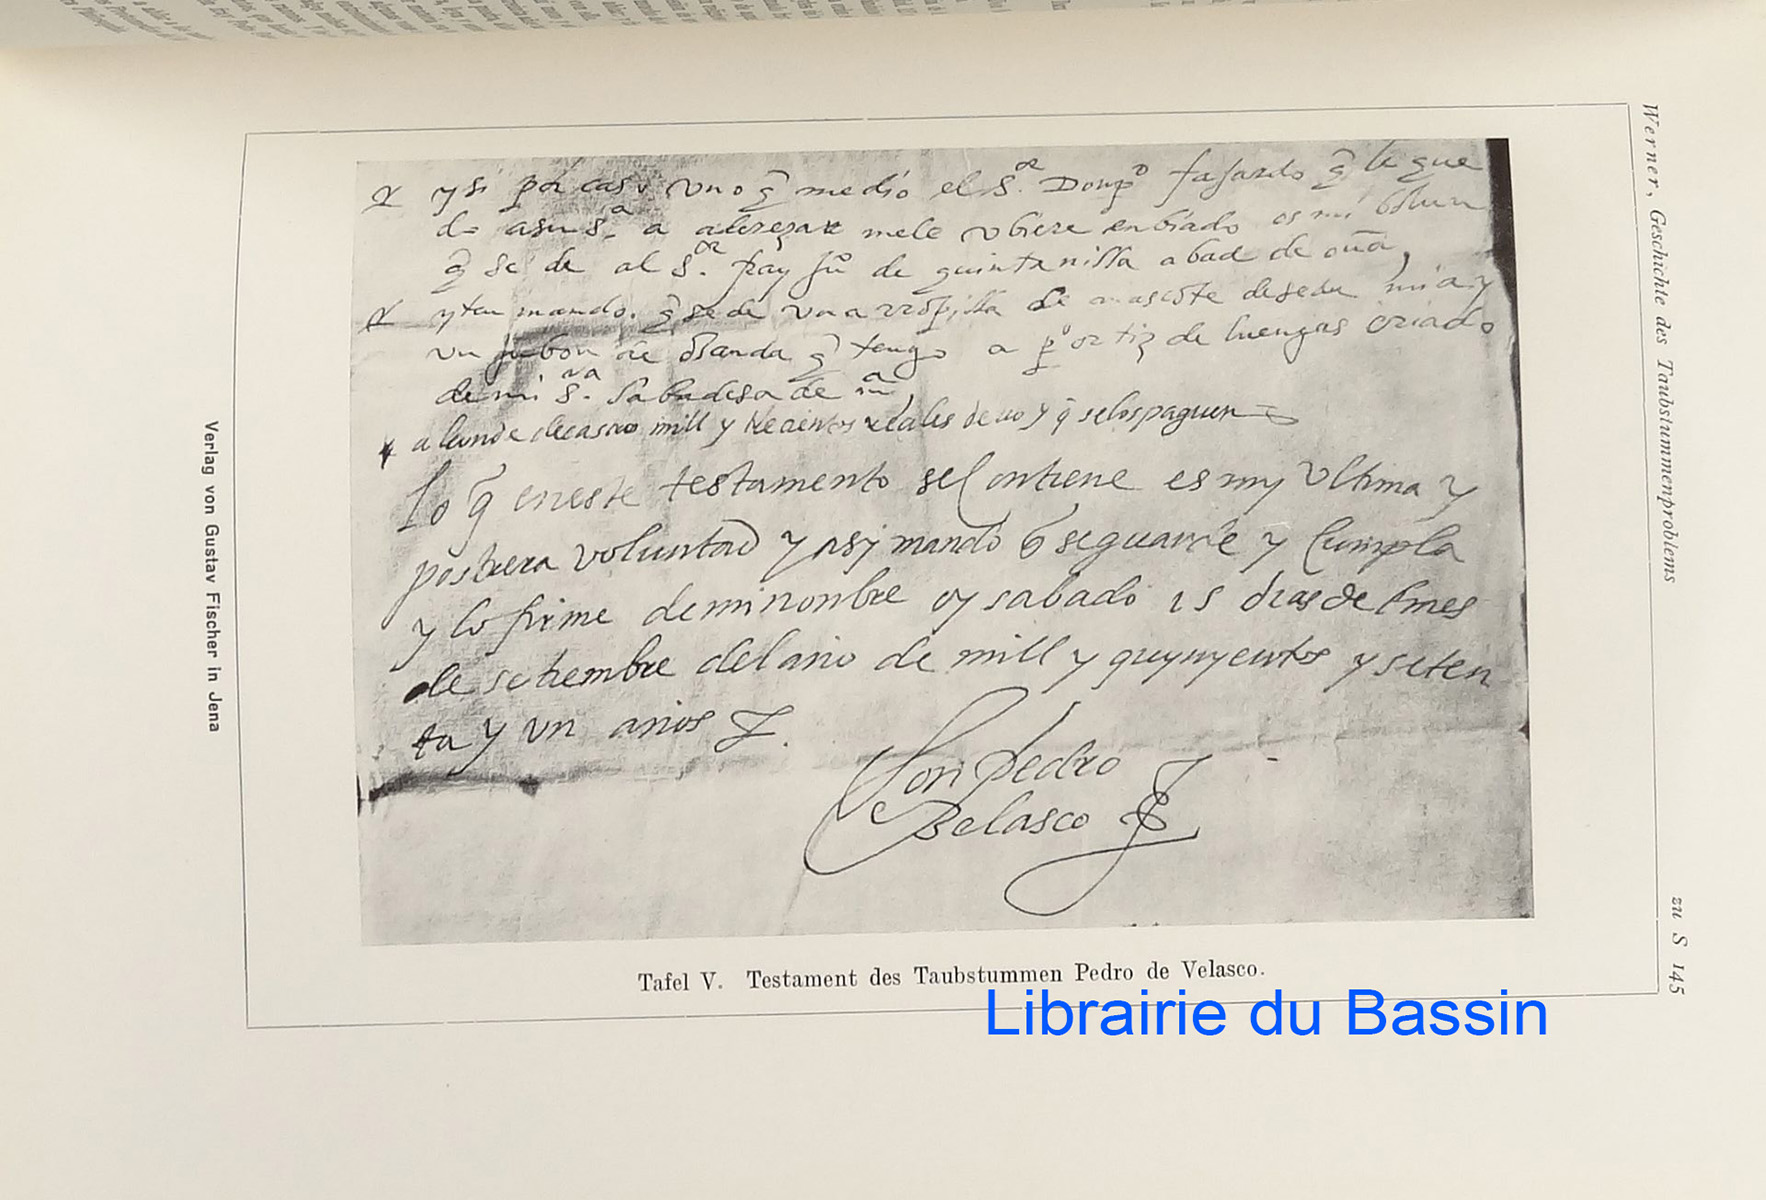 Werner, Geschichte des Taubstummenproblems
zu S 145
y si por caso uno q̃ me dio el s.ʳ Don p.º fajardo q̃ le que
do a su s.ª a aderezar me le ubiere enbiado es mi
q̃ se de al s.ᵒʳ fray ju.º de quintanilla abad de oña,
yten mando. q̃ se de una rropilla de de seda mia y
un jubon de olanda q̃ tengo a p.º ortiz de luengas criado
de mi s.ʳᵃ la badesa de
mill y trecientos reales y q̃ se los paguen
lo q̃ en este testamento se contiene es my ultima y
postrera voluntad y asy mando q̃ se guarde y cumpla
y lo firme de mi nonbre oy sabado 15 dias del mes
de setiembre del anno de mill y quynyentos y seten
ta y un anños
Don pedro
Belasco
Tafel V. Testament des Taubstummen Pedro de Velasco.
Verlag von Gustav Fischer in Jena
Librairie du Bassin